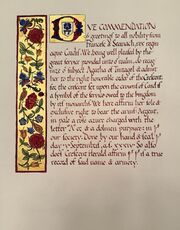 DVE COMMENDATION
& greetings to all nobility from
Francois & Seanach, rex regin
aque Caid. We being well pleased by the
great service provided unto o'realm, do recog
nize o'subject Agatha of Tintagel & admit
her to the right honorable order of the Crescent,
for the crescent set upon the crown of Caid is
a symbol of the service owed to the kingdom
by all monarchs. We here affirm her sole &
exclusive right to bear the arms: Argent,
in pale a rose azure charged with the
letter 'A' and a dolmen purpure in
our society. Done by our hand & seal
day September, a.s.
doth Crescent Herald affirm this is a true
record of said name & armory.